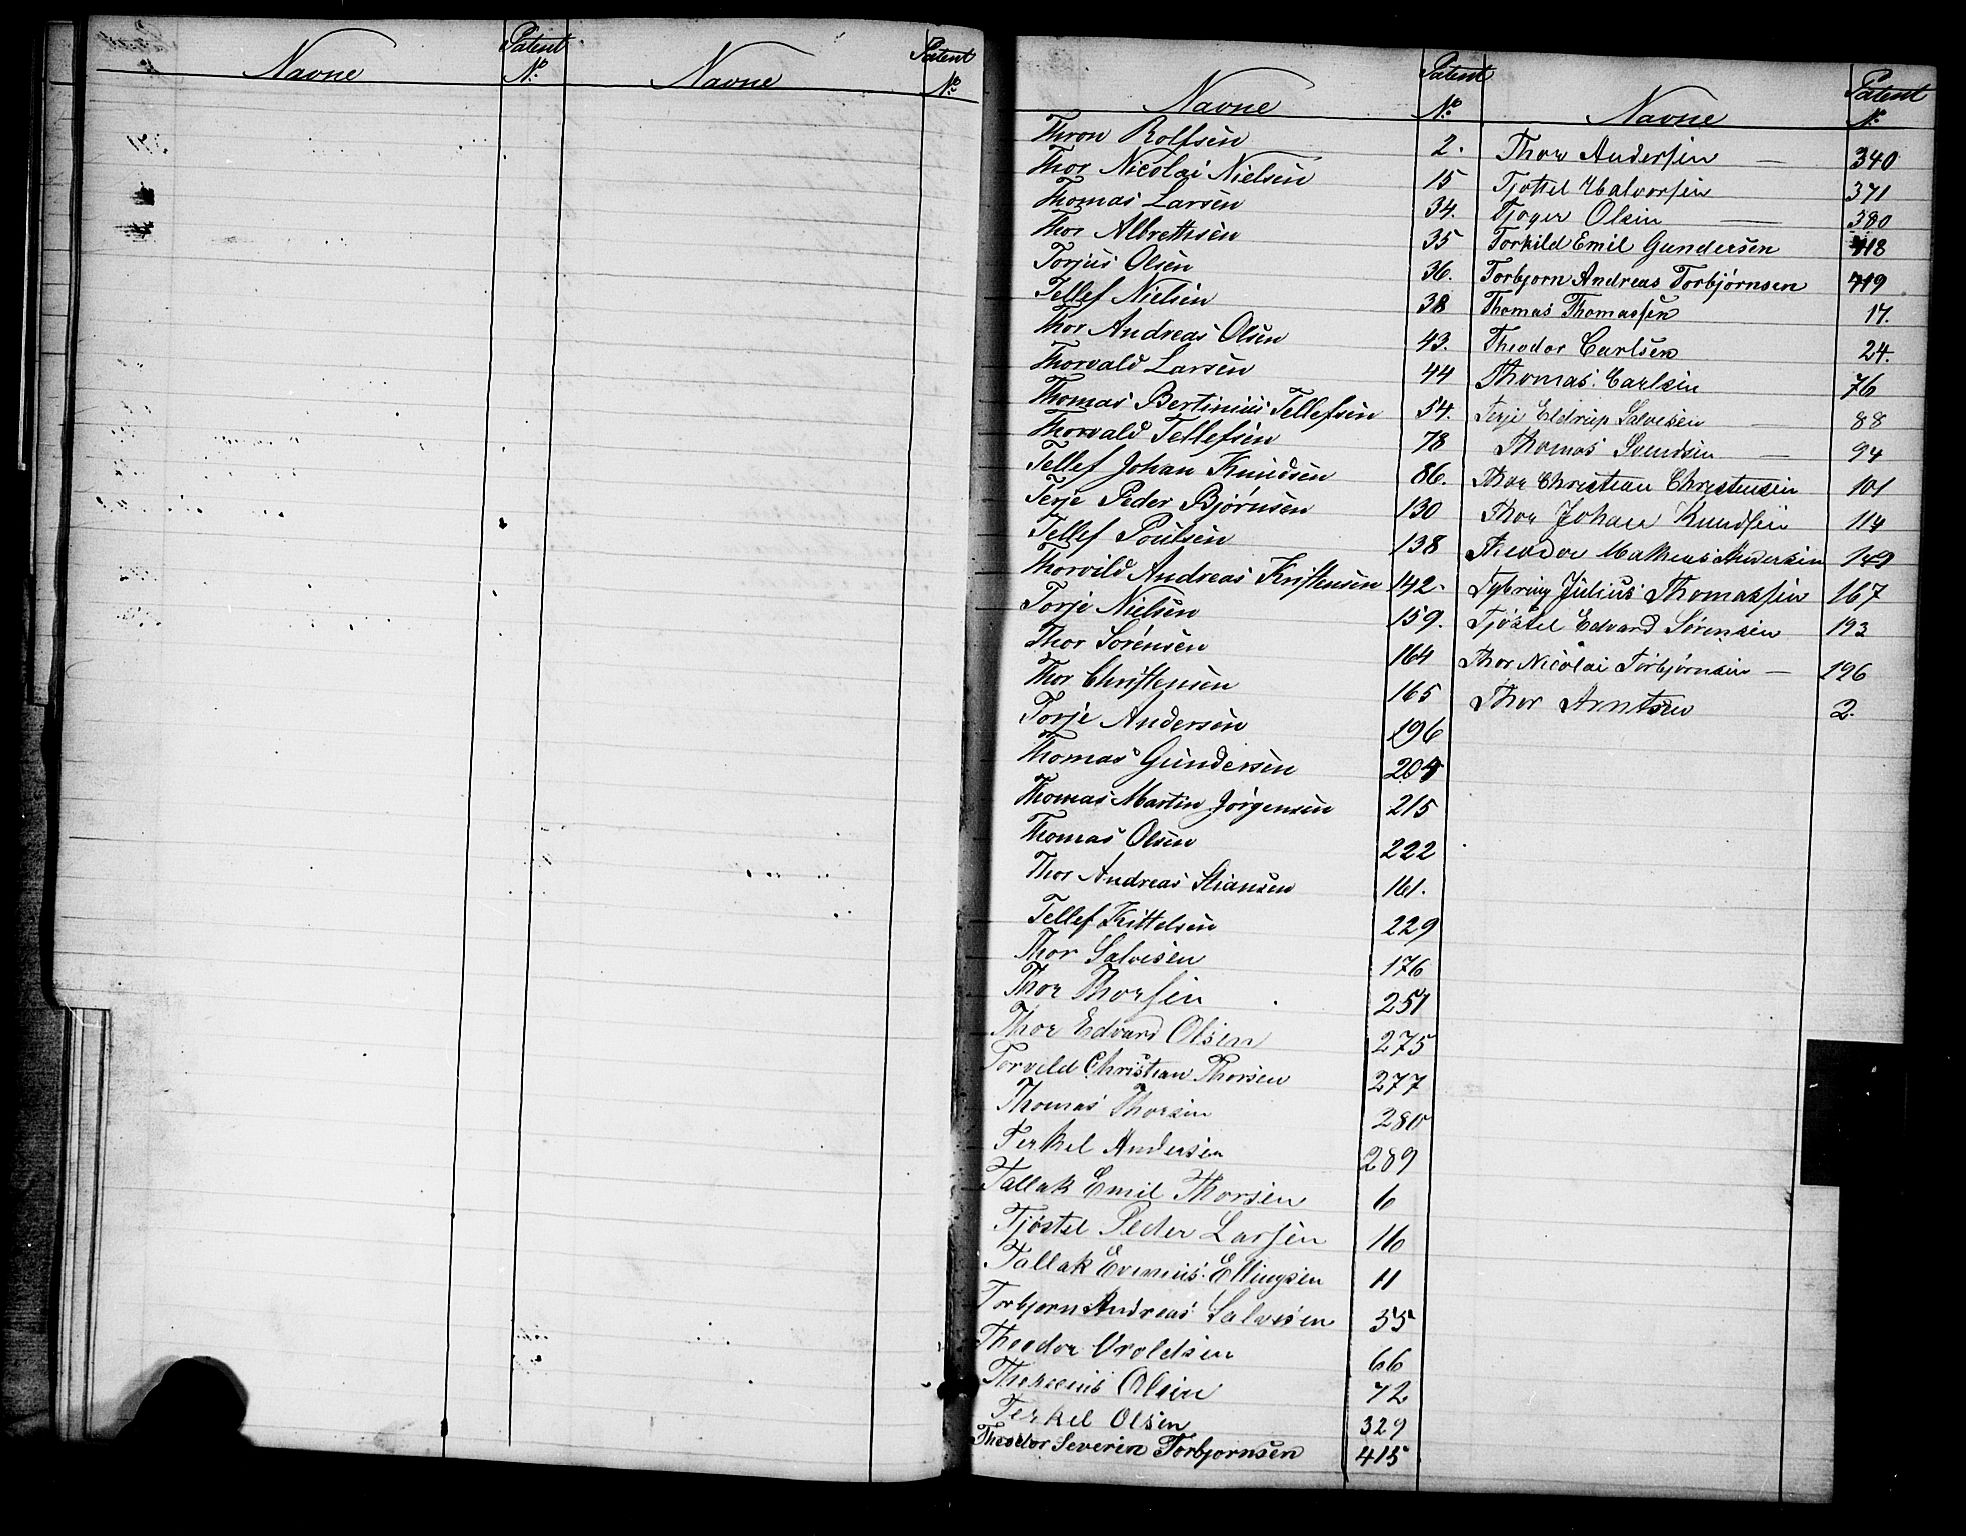 Navne Patent No. Navne Patent No.
Navne Patent No. Navne Patent No.
Thron Rolfsen 2.
Thor Nicolai Nielsen 15
Thomas Larsen 34.
Thor Albrethsen 35
Torjus Olsen 36.
Tellef Nielsen 38
Thor Andreas Olsen 43.
Thorvald Larsen 44
Thomas Bertinius Tellefsen 54.
Thorvald Tellefsen 78
Tellef Johan Knudsen 86.
Terje Peder Bjørnsen 130
Tellef Poulsen 138
Thorvild Andreas Kristensen 142.
Torje Nielsen 159.
Thor Sørensen 164
Thor Christensen 165
Torje Andersen 196
Thomas Gundersen 204
Thomas Martin Jørgensen 215
Thomas Olsen 222
Thor Andreas Stiansen 161.
Tellef Kittelsen 229
Thor Salvesen 176
Thor Thorsen 251
Thor Edvard Olsen 275
Torvild Christian Thorsen 277
Thomas Thorsen 280
Terkel Andersen 289
Tallak Emil Thorsen 6
Tjøstel Peder Larsen 16
Tallak Evenius Ellingsen 11
Torbjørn Andreas Salvesen 35
Theodor Oroldsen 66
Olsen 72
Terkel Olsen 329
Theodor Severin Torbjornsen 415
Thor Andersen 340
Tjøstel Halvorsen 371
Tjøger Olsen 380
Torkild Emil Gundersen 418
Torbjorn Andreas Torbjørnsen 419
Thomas Thomassen 17.
Theodor Carlsen 24.
Thomas Carlsen 76
Terje Eldrup Salvesen 88
Thomas Svendsen 94
Thor Christian Christensen 101
Thor Johan Knudsen 114
Theodor Matheus Andersen 149
Tybring Julius Thomassen 167
Tjøstel Edvard Sørensen 193
Thor Nicolai Torbjørnsen 196
Thor Arntsen 2.